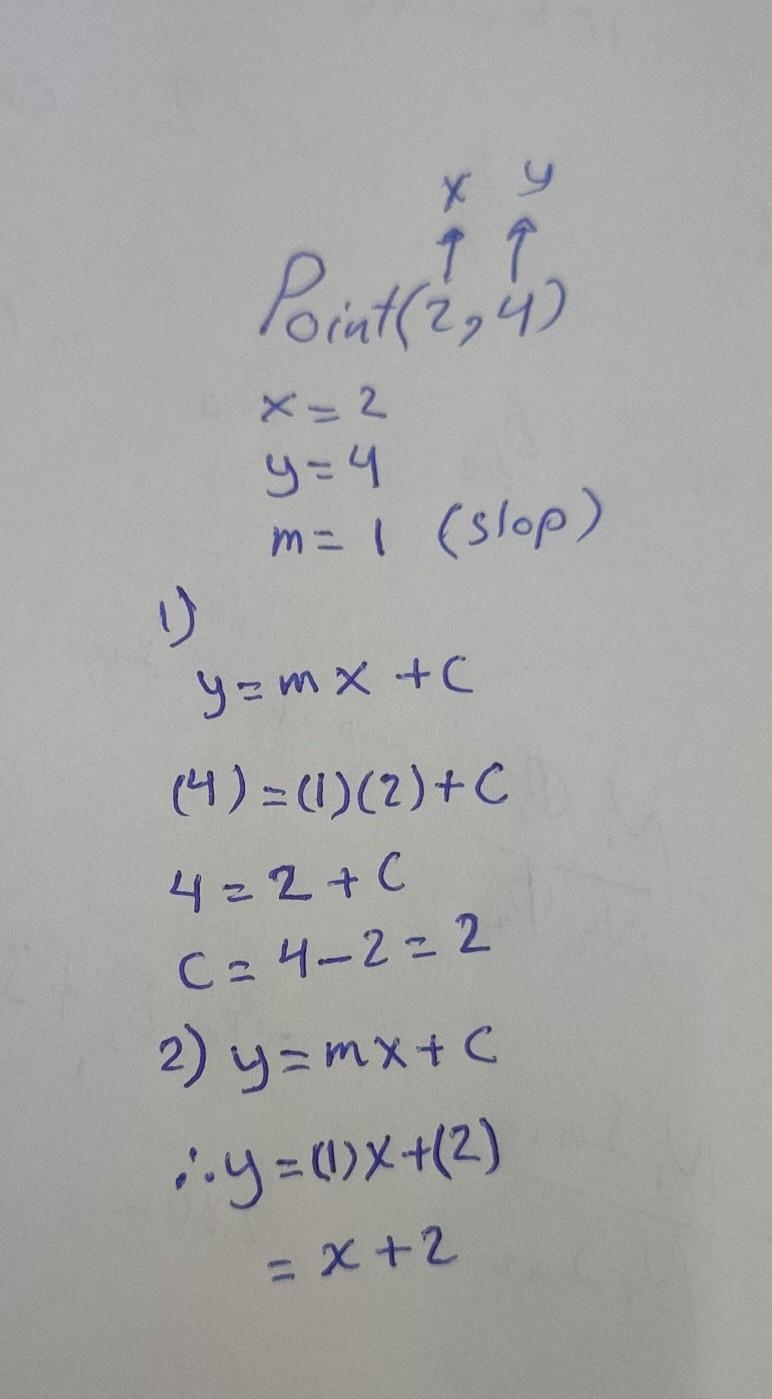 x y
↑ ↑
Point(2,4)
x=2
y=4
m=1 (slop)
1)
y=mx+C
(4)=(1)(2)+C
4=2+C
C=4-2=2
2) y=mx+C
∴y=(1)x+(2)
=x+2